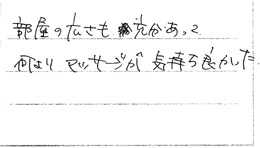 部屋の広さも充分あって
何よりマッサージが気持ち良かした